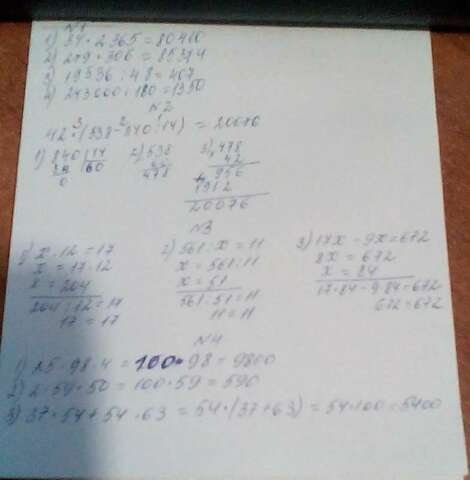 N1
1) 34 · 2365 = 80410
2) 279 · 306 = 85374
3) 19536 : 48 = 407
4) 243000 : 180 = 1350
N2
42 · (538 - 840 : 14) = 20076
1) 840 14 2) 538 3) 478
84 60 60 42
0 478 + 956
1912
20076
N3
1) x : 12 = 17 2) 561 : x = 11 3) 17x - 9x = 672
x = 17 · 12 x = 561 : 11 8x = 672
x = 204 x = 51 x = 84
204 : 12 = 17 561 : 51 = 11 17 · 84 - 9 · 84 = 672
17 = 17 11 = 11 672 = 672
N4
1) 25 · 98 · 4 = 100 · 98 = 9800
2) 2 · 59 · 50 = 100 · 59 = 590
3) 37 · 54 + 54 · 63 = 54 · (37 + 63) = 54 · 100 = 5400